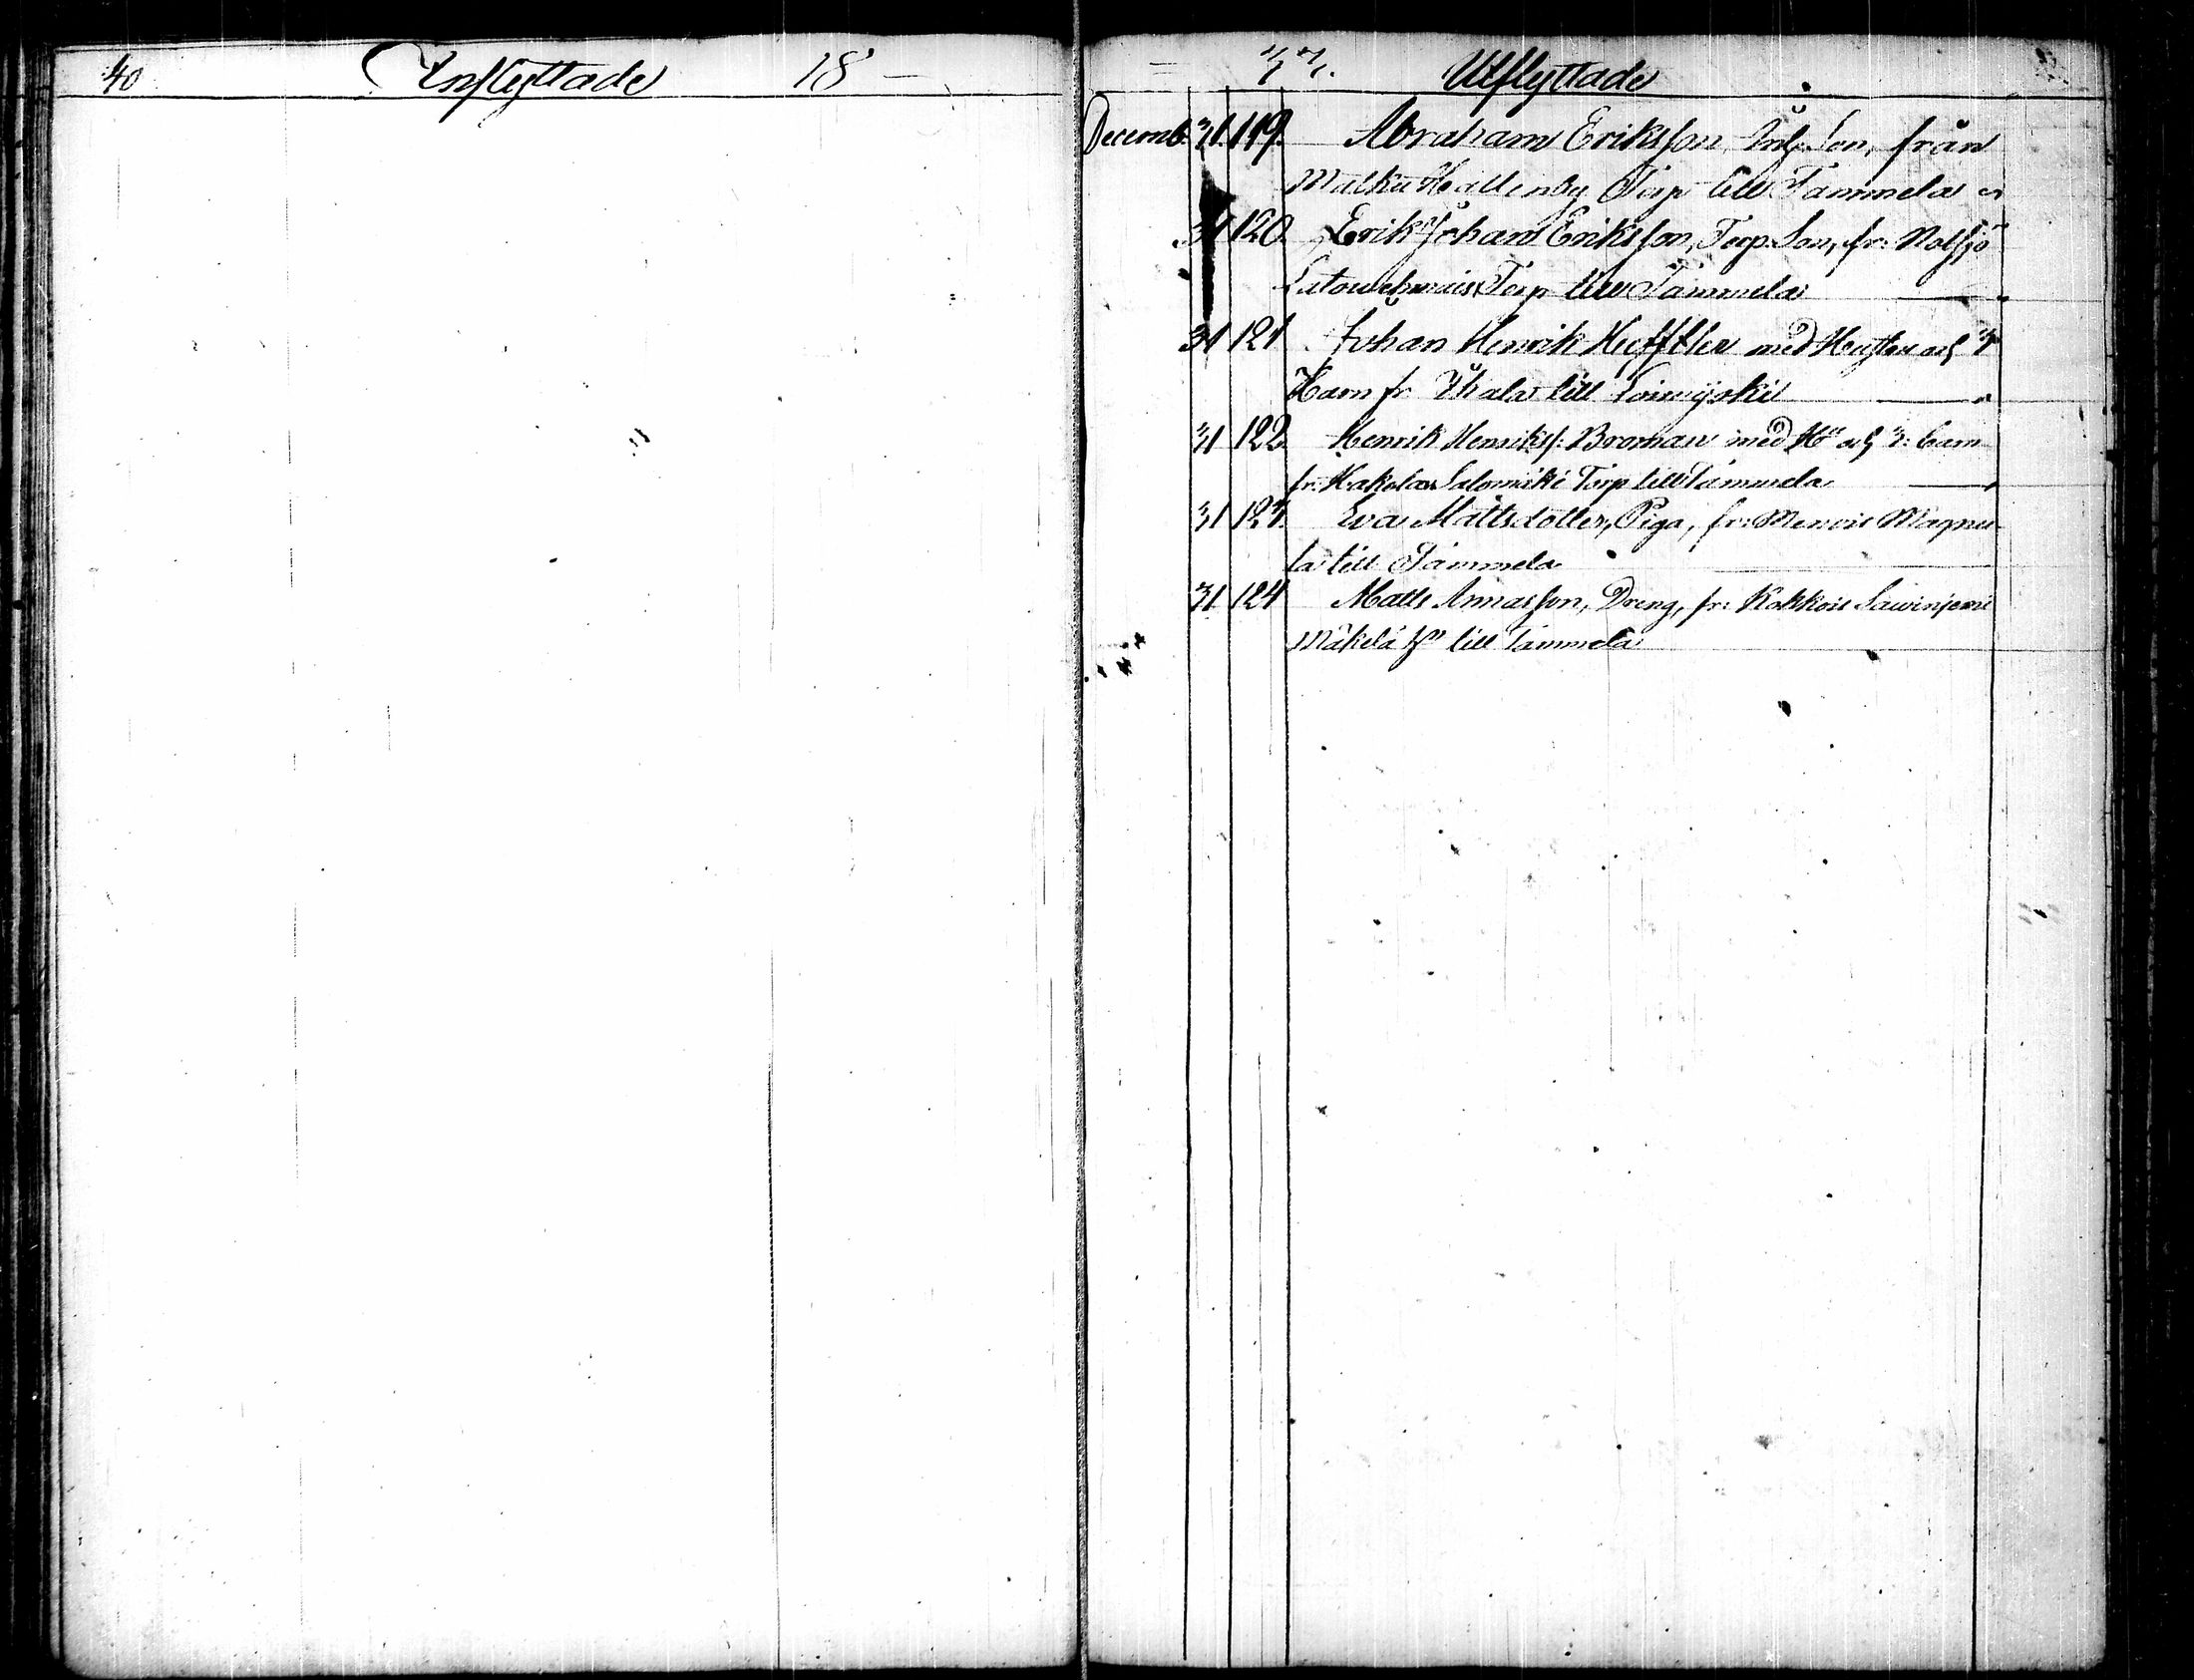 40 Inflyttade 18
33. Utflyttade
Decemb. 31. 119. Abraham Eriksson, Son, från
Torp till Tammela
31 120. Erik Johan Eriksson, Torp. Son, fr:
Torp till Tammela
31 121 Johan Henrik med Hustru och 3
Barn fr till
31 122. Henrik Henriks: Broman med Hu och 3: barn
fr: Kakola Salomäki Torp till Tammela
31 123. Eva Mattsdotter, Piga, fr: Menois Magnu-
la till Tammela
31 124 Matts Annasson, Dreng, fr: Kokkois Sawinjemi
Mäkelä till Tammela